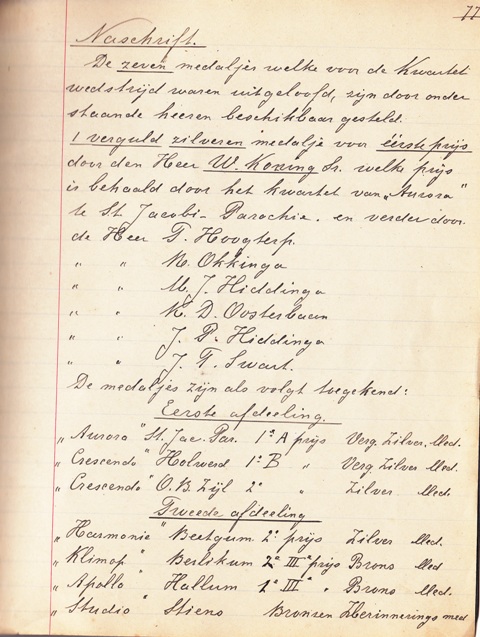 77
Naschrift.
De zeven medaljes welke voor de Kwartet
wedstrijd waren uitgeloofd, zijn door onder
staande heeren beschikbaar gesteld.
1 verguld zilveren medalje voor éérste prijs
door den Heer W. Koning Sr. welke prijs
is behaald door het kwartet van „Aurora"
te St. Jacobi-Parochie. en verder door
de Heer T. Hoogterp.
„ „ N. Okkinga
„ „ M. J. Hiddinga
„ „ K. D. Oosterbaan
„ „ J. P. Hiddinga
„ „ J. T. Swart.
De medaljes zijn als volgt toegekend:
Eerste afdeeling.
„Aurora" St. Jac. Par. 1e A prijs Verg. Zilver. Med.
„Crescendo" Holwerd 1e B „ Verg. Zilver Med.
„Crescendo" O. B. Zijl 2e „ Zilver Med.
Tweede afdeeling
„Harmonie" Beetgum 2e prijs Zilver Med.
„Klimop" Berlikum 2e III prijs Brons Med
„Apollo" Hallum 1e III „ Brons Med.
„Studio" Stiens Bronzen Herinnerings med